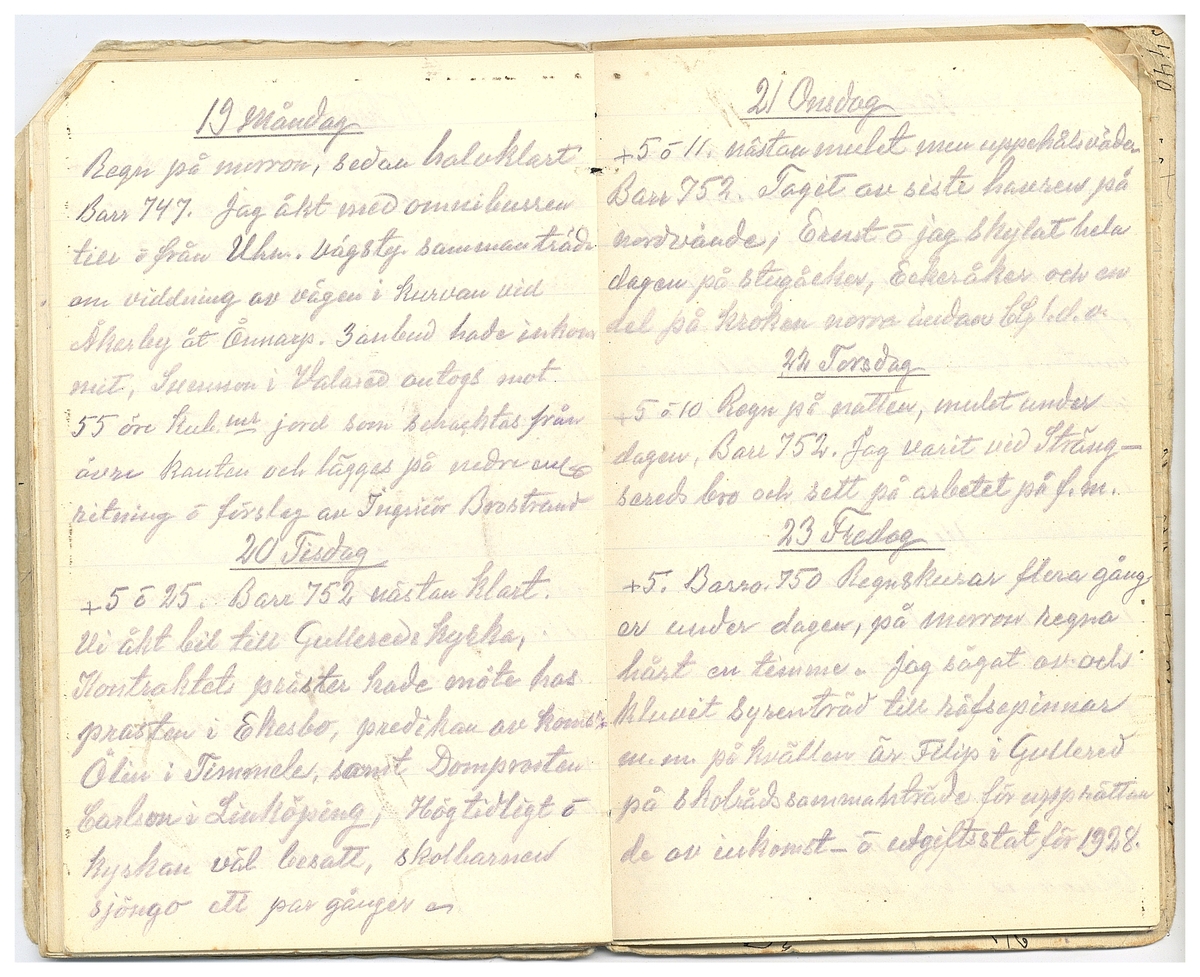 19 Måndag
Regn på morron, sedan halvklart
Barr 747. Jag åkt med omnibussen
till ö från Uhn. vägsty. sammanträde
om viddning av vägen i kurvan vid
Åkerby åt Önnarp. 3 anbud hade inkom
mit, Svenson i Valared antogs mot
55 öre Kub. mr jord som schacktas från
övre kanten och lägges på nedre enl
ritning ö förslag av Ingeniör Brostrand
20 Tisdag
+5 ö 25. Barr 752 nästan klart.
Vi åkt bil till Gullereds kyrka,
Kontraktets präster hade möte hos
prosten i Ekesbo, predikan av
Ölin i Timmele, samt Domprosten
Carlson i Linköping, Högtidligt ö
kyrkan väl besatt, skolbarnen
sjöngo ett par gånger
21 Onsdag
+5 ö 11. nästan mulet men uppehålsväder
Barr 752. Taget av siste haveren på
nordvände, Ernst ö jag skylat hela
dagen på stugåcker, Eckeråker och en
del på kroken norra
22 Torsdag
+5 ö 10 Regn på natten, mulet under
dagen, Barr 752. Jag varit vid Sträng-
sereds bro och sett på arbetet på f.m.
23 Fredag
+5. Barro. 750 Regnskurar flera gång
er under dagen, på morron regna
hårt en timme. Jag sågat av och
kluvit syrenträd till räfsepinnar
m.m. på kvällen är Filip i Gullered
på skolrådssammanträde för upprättan
de av inkomst- ö utgiftsstat för 1928.
5440